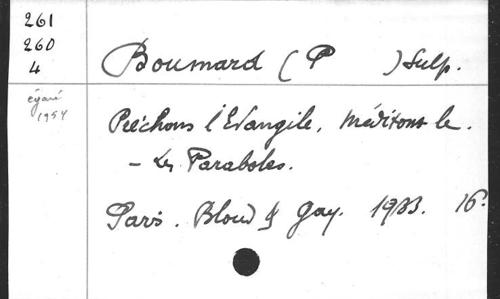 261
260
4
égaré
1954
Boumard (P      ) Sulp.
Prêchons l'Evangile, Méditons le.
– Les Paraboles.
Paris. Bloud & Gay. 1933. 16°